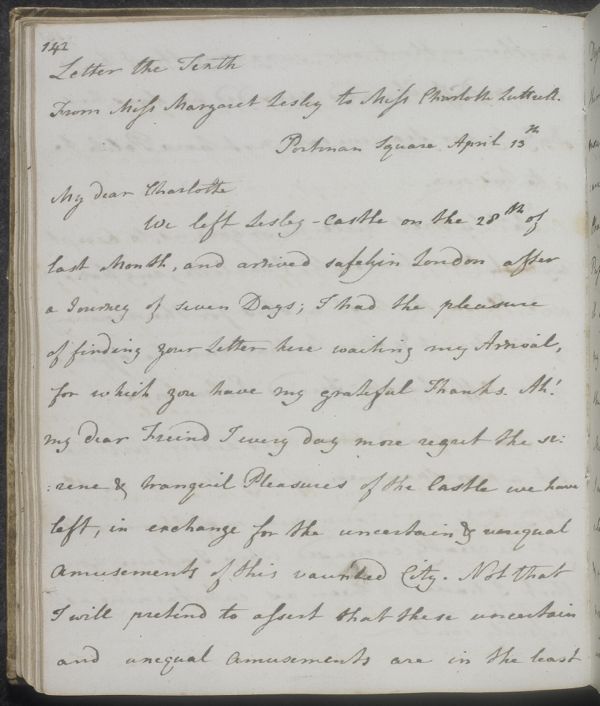 142
Letter the Tenth
From Miss Margaret Lesley to Miss Charlotte Luttrell.
Portman Square April 13th
My dear Charlotte
We left Lesley-Castle on the 28th of
last Month, and arived safely in London after
a Journey of seven Days; I had the pleasure
of finding your Letter here waiting my Arrival,
for which you have my grateful Thanks. Ah!
my dear Freind I every day more regret the se:
:rene & tranquil Pleasures of the Castle we have
left, in exchange for the uncertain & unequal
Amusements of this vaunted City. Not that
I will pretend to assert that these uncertain
and unequal Amusements are in the least